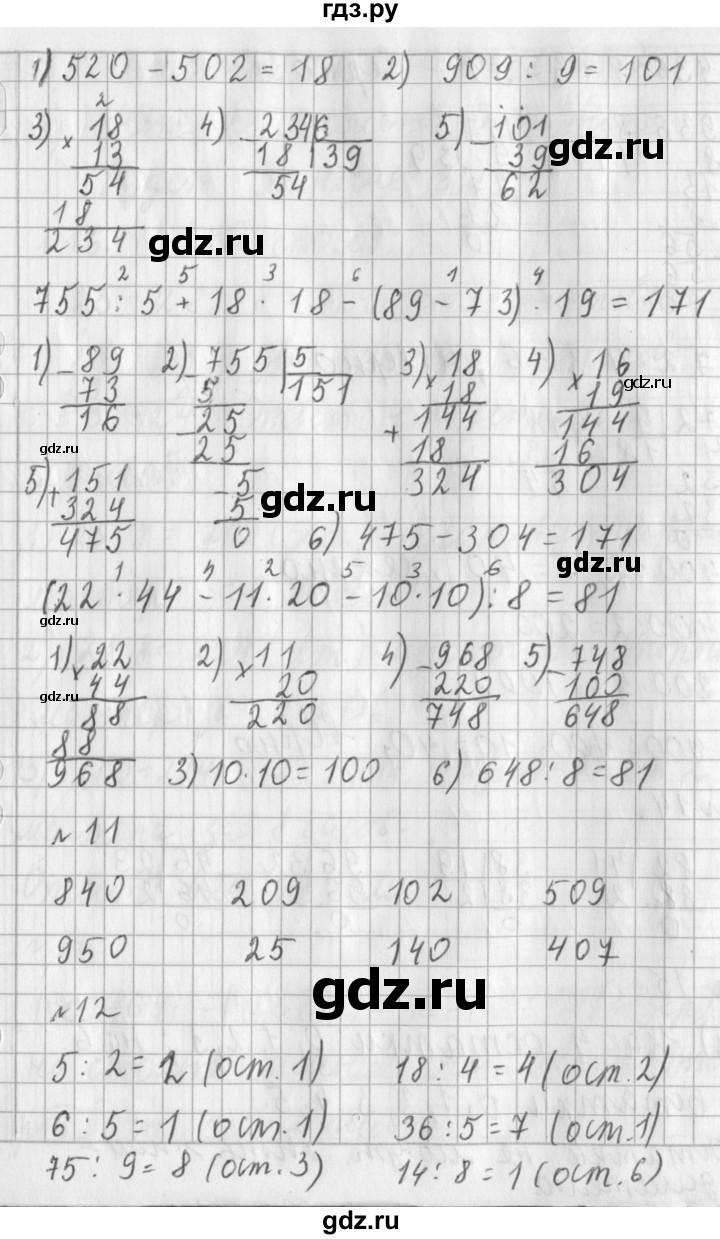 гдз.ру
1) 520 - 502 = 18 2) 909 : 9 = 101
2
3) × 18 4) - 2346 5) - 101
13 18 | 39 39 gdz.ru
54 54 62
18
234 gdz.ru
2 5 3 6 1 4
755 : 5 + 18 · 18 - (89 - 73) · 19 = 171
1) - 89 2) - 755 | 5 3) × 18 4) × 16
73 5 151 18 19 gdz.ru
16 - 25 + 144 144
gdz.ru 25 18 16
5) + 151 - 5 324 304
324 5 gdz.ru
475 0 6) 475 - 304 = 171
gdz.ru
1 4 2 5 3 6
(22 · 44 - 11 · 20 - 10 · 10) : 8 = 81
gdz.ru
1) × 22 2) × 11 4) - 968 5) - 748
gdz.ru 44 20 220 100
88 220 748 648
88
968 3) 10 · 10 = 100 6) 648 : 8 = 81
№11
840 209 102 509
950 25 140 407
gdz.ru
№12
5 : 2 = 2 (ост. 1) 18 : 4 = 4 (ост. 2)
6 : 5 = 1 (ост. 1) 36 : 5 = 7 (ост. 1)
75 : 9 = 8 (ост. 3) 14 : 8 = 1 (ост. 6)
gdz.ru